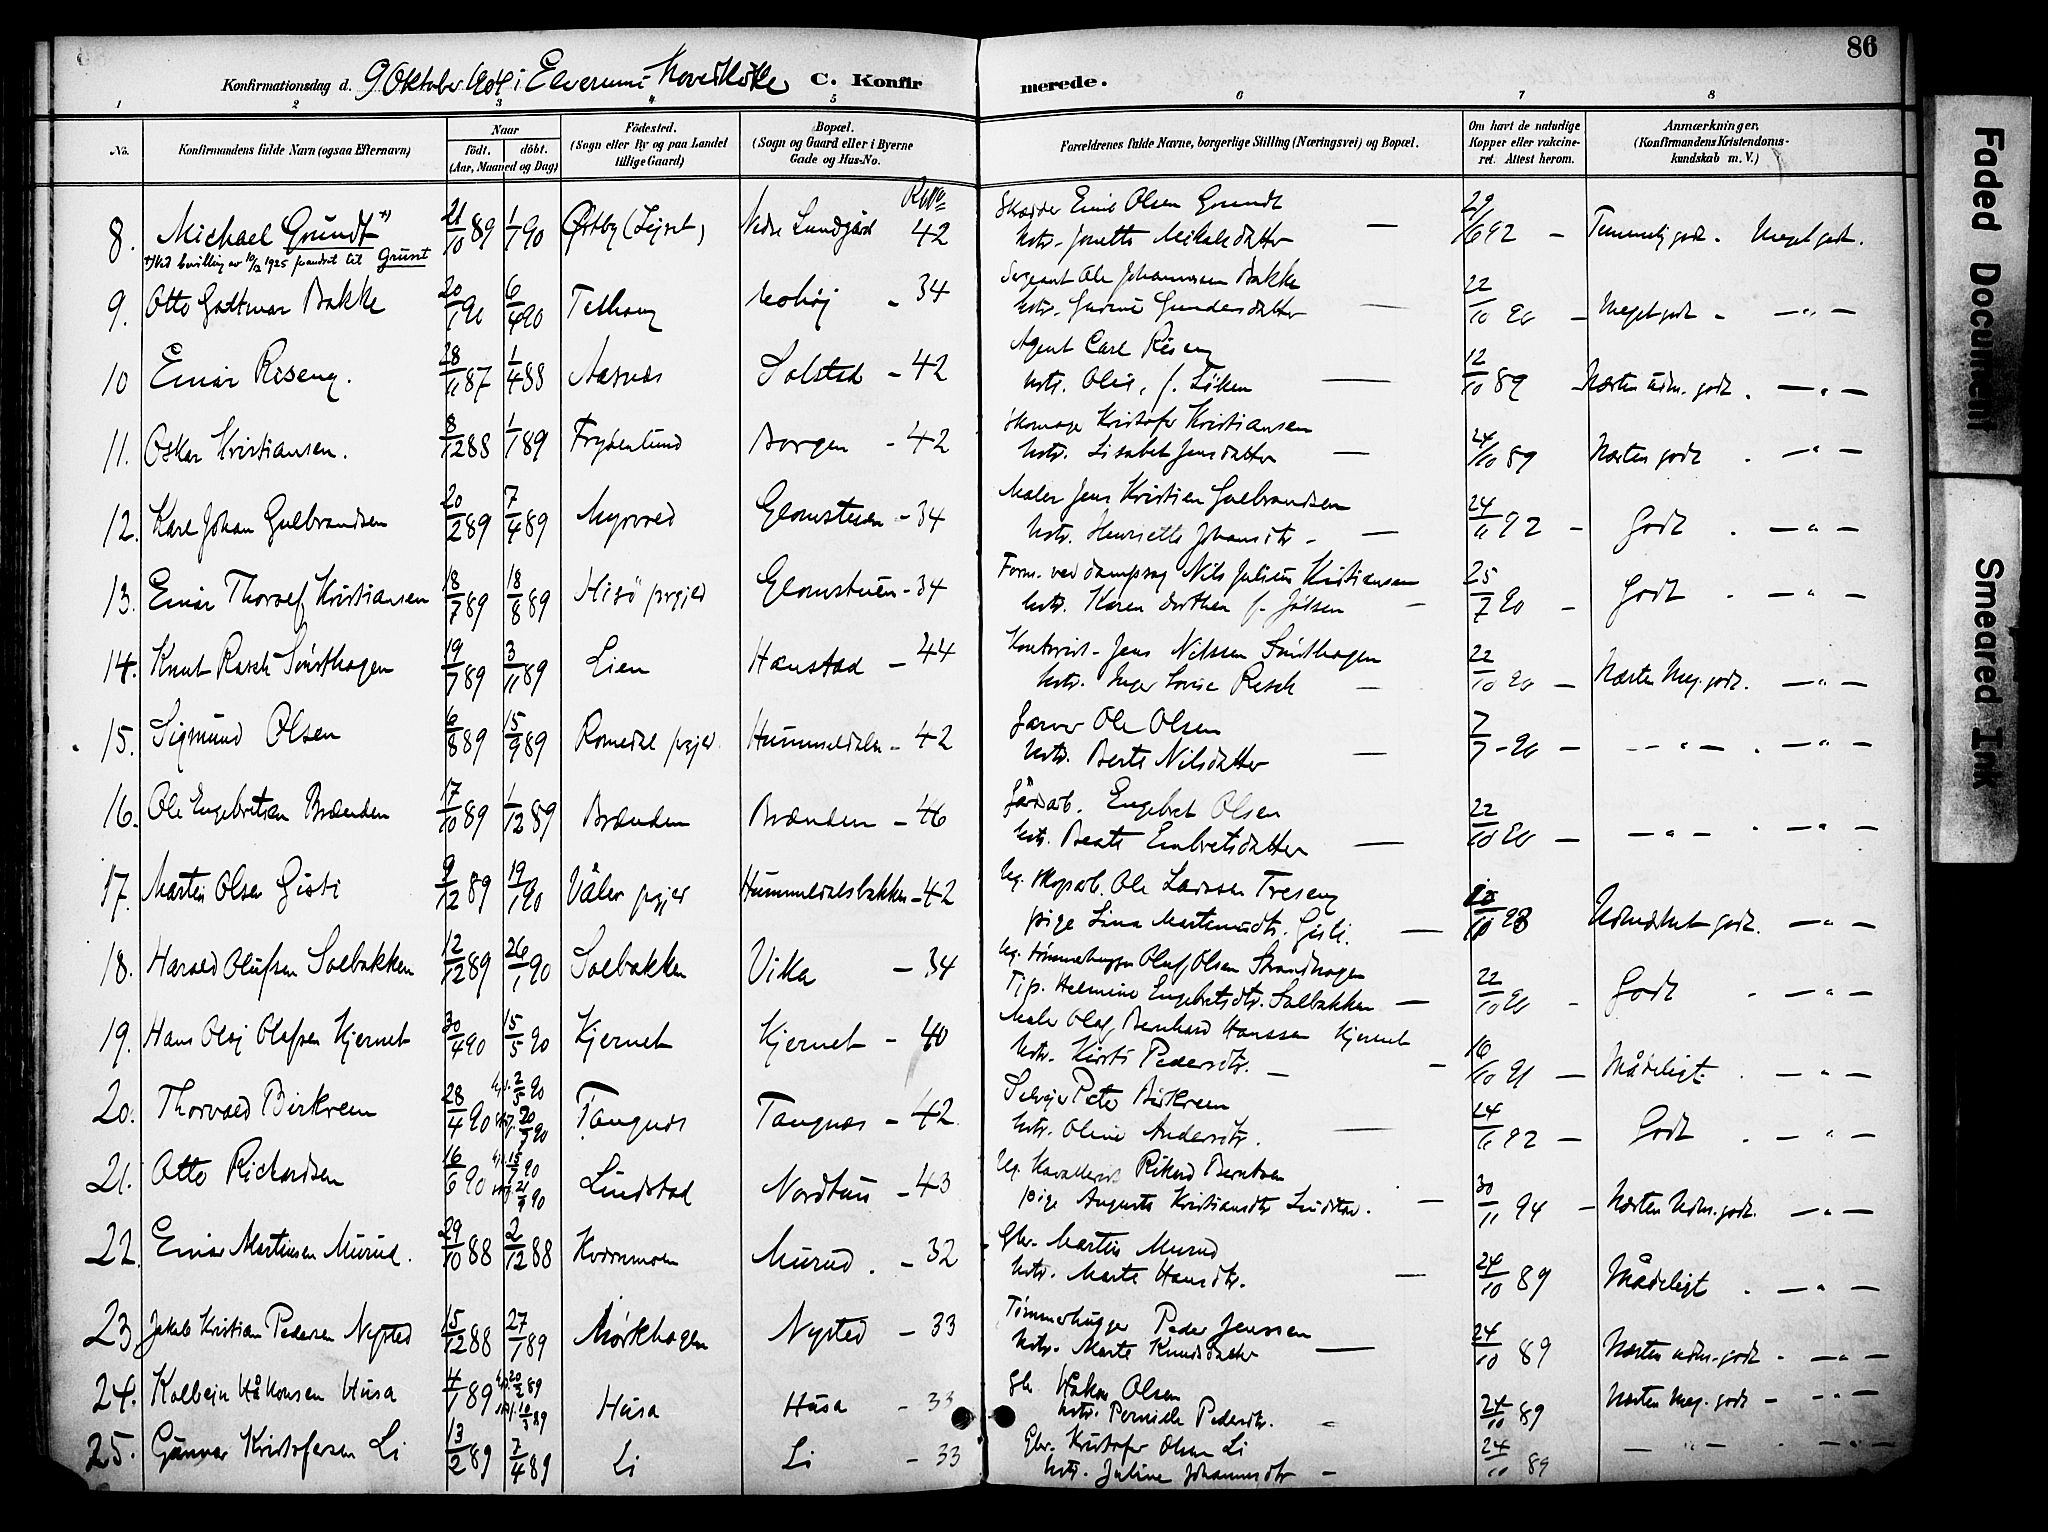 86
Konfirmationsdag d. 9 Oktober 1904 i Elverums Hovedkirke C. Konfirmerede.
1 2 3 4 5 6 7 8
No. Konfirmandens fulde Navn (ogsaa Efternavn) Naar født. døbt. (Aar, Maaned og Dag) Fødested. (Sogn eller By og paa Landet tillige Gaard) Bopæl. (Sogn og Gaard eller i Byerne Gade og Hus-No. Forældrenes fulde Navne, borgerlige Stilling (Næringsvei) og Bopæl. Om havt de naturlige Kopper eller vakcineret. Attest herom. Anmærkninger, (Konfirmandens Kristendomskundskab m. V.)
8. Michael Grundt *) 21/10 89 1/1 90 Østby (Lejret) Nedre Lundgård 42 Skrædder Emil Olsen Grundt
Hstr. Jonette Mikalsdatter — 29/6 92 — Temmelig godt. Meget godt.
*) Ved bevilling av 10/12 1925 forandret til Grunt
9. Otto Gottmar Bakke 20/1 90 6/4 90 Melhøj - 34 Sergeant Ole Johannessen Bakke
Hstr. Gurine Gundersdatter — 22/10 90 — Meget godt — " —
10 Einar Riseng. 28/11 87 1/4 88 Aasnæs Solstad - 42 Agent Carl Riseng
Hstr. Olise, f. Løken — 12/10 89 Næsten udm. godt. — " —
11. Oskar Kristiansen. 8/12 88 1/1 89 Frydenlund Borgen - 42 Skomager Kristofer Kristiansen
Hstr. Lisabet Jensdatter — 24/10 89 Næsten godt . — " —
12. Karl Johan Gulbrandsen 20/2 89 7/4 89 Myrvold Glomstuen - 34 Maler Jens Kristian Gulbrandsen
Hstr. Henriette Johansdtr. — 24/11 92 — Godt . — " —
13. Einar Thorolf Kristiansen 18/7 89 18/8 89 Hisø prgjeld Glomstuen - 34 Form. ved dampsag Nils Julius Kristiansen
Hstr. Karen Dorthea f. Jølsen — 25/7 90 — Godt . — " —
14. Knut Rasch Sørsthagen 19/7 89 3/11 89 Lien Hanstad - 44 Kontorist Jens Nilssen Sørsthagen
Hstr. Inger Lovise Resch — 22/10 90 — Næsten Meg. godt. — " —
15. Sigmund Olsen 6/8 89 15/9 89 Romedal prgjeld. Hummeldalen - 42 Farver Ole Olsen
Hstr. Berte Nilsdatter — 7/7 - 90 — — " — . — " —
16. Ole Engebretsen Brænden 17/10 89 1/12 89 Brænden Brænden - 46 Gårdarb. Engebret Olsen
Hstr. Beate Embretsdatter — 22/10 90 — — " — . — " —
17. Martin Olsen Gisti 9/12 89 19/1 90 Våler prgjeld Hummeldalsbakken - 42 Ug. skoparb. Ole Larssen Treseng
pige Lina Martinusdtr. Gisti. — 10/10 93 Udmærket godt. — " —
18. Harald Olufsen Solbakken 12/12 89 26/1 90 Solbakken Vikka - 34 Ug. tømmerhugger Oluf Olsen Strandhagen
Tjp. Helmine Engebretsdtr. Solbakken — 22/10 90 - Godt . — " —
19. Hans Olaj Olafsen Kjernet 30/4 90 15/5 90 Kjernet Kjernet - 40 Maler Olaf Bernhard Hanssen Kjernet
Hstr. Kirsti Pedersdtr. — 16/10 91 — Mådeligt . — " —
20. Thorvald Birkrem 28/4 90 Hjd. 2/5 90 Tangnæs Tangnæs - 42. Selvejer Peter Birkrem
Hstr. Oline Andersdtr. — 24/11 92 — Godt . — " —
21. Otto Richardsen 16/6 90 Hjd. 15/7 90 Lindstad Nordtun - 43 Ug. Kavallerist Rikard Berntsen
pige Augusta Kristiansdtr Lindstad. — 30/11 94 — Næsten Udm. godt. — " —
22. Einar Martinsen Murud. 29/10 88 2/12 88 Kvernmoen Murud. - 32 Gbr. Martin Murud
Hstr. Marte Hansdtr. — 24/10 89 Mådeligt . — " —
23. Jakob Kristian Pedersen Nysted 15/12 88 27/1 89 Mørkhagen Nysted - 33 Tømmerhugger Peder Jenssen
Hstr. Marte Knudsdatter — 24/10 89 Næsten udm. godt . — " —
24. Kolbein Håkonsen Husa 4/1 89 Hjd. 20/2 89 Husa Husa - 33 Gbr. Håkon Olsen
Hstr. Pernille Pedersdtr. 24/10 89 Næsten Meg. godt — " —
25. Gunnar Kristofersen Li 13/2 89 7/4 89 Li Li - 33 Gbr. Kristofer Olsen Li
Hstr. Juline Johannesdtr — 24/10 89 — " — . — " —
Faded Document
Smeared Ink